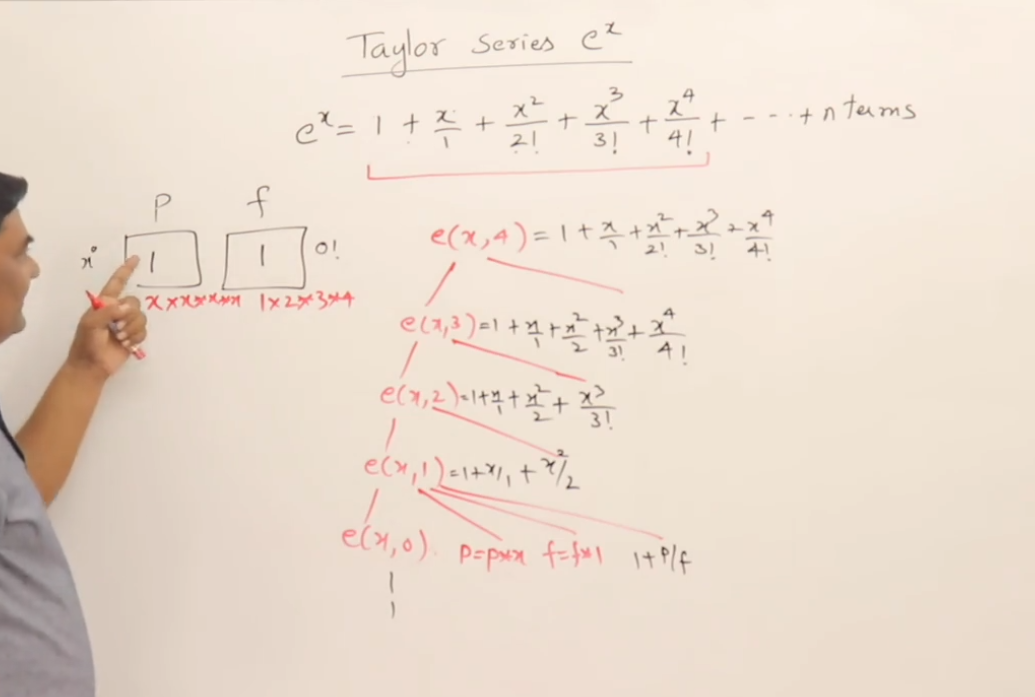 Taylor Series e^x
e^x = 1 + x/1 + x^2/2! + x^3/3! + x^4/4! + - - - + n terms
P f
x^0 1 1 0!
x*x*x*x*x 1*2*3*4
e(x,4) = 1 + x/1 + x^2/2! + x^3/3! + x^4/4!
e(x,3) = 1 + x/1 + x^2/2 + x^3/3! + x^4/4!
e(x,2) = 1 + x/1 + x^2/2 + x^3/3!
e(x,1) = 1 + x/1 + x^2/2
e(x,0) P=P*x f=f*1 1+P/f
1